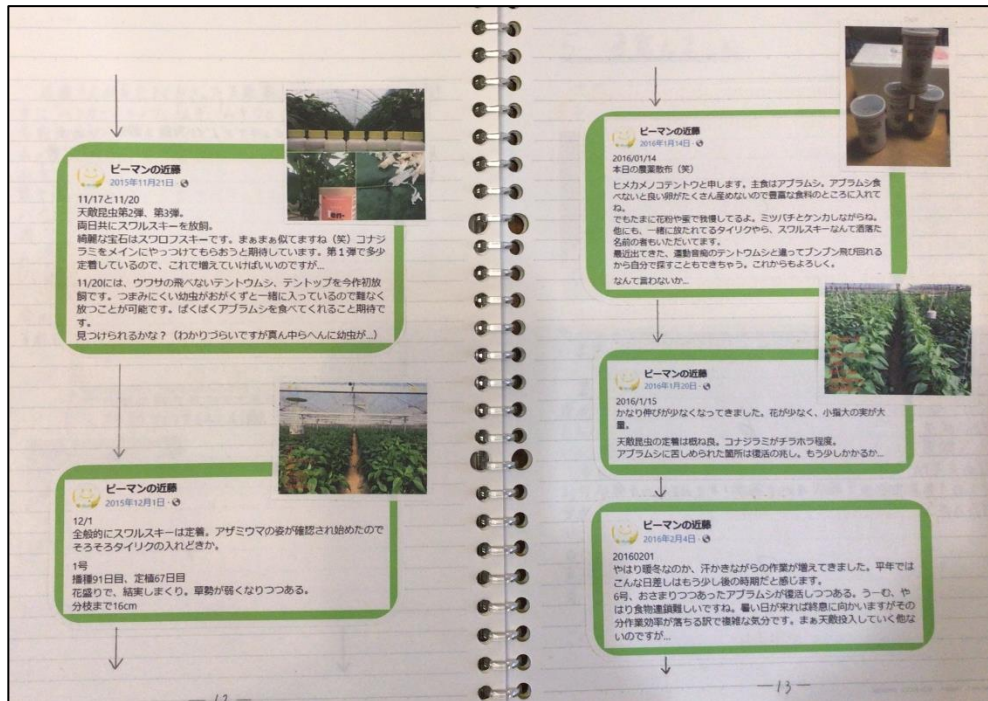 ピーマンの近藤
2015年11月21日
11/17と11/20
天敵昆虫第2弾、第3弾。
両日共にスワルスキーを放飼。
綺麗な宝石はスワロフスキーです。まぁまぁ似てますね（笑）コナジ
ラミをメインにやっつけてもらおうと期待しています。第１弾で多少
定着しているので、これで増えていけばいいのですが...
11/20には、ウワサの飛べないテントウムシ、テントップを今作初放
飼です。つまみにくい幼虫がおがくずと一緒に入っているので難なく
放つことが可能です。ぱくぱくアブラムシを食べてくれること期待で
す。
見つけられるかな？（わかりづらいですが真ん中らへんに幼虫が...）
ピーマンの近藤
2015年12月1日
12/1
全般的にスワルスキーは定着。アザミウマの姿が確認され始めたので
そろそろタイリクの入れどきか。
1号
播種91日目、定植67日目
花盛りで、結実しまくり。草勢が弱くなりつつある。
分枝まで16cm
12
ピーマンの近藤
2016年1月14日
2016/01/14
本日の農薬散布（笑）
ヒメカメノコテントウと申します。主食はアブラムシ。アブラムシ食
べないと良い卵がたくさん産めないので豊富な食料のところに入れて
ね。
でもたまに花粉や蜜で我慢してるよ。ミツバチとケンカしながらね。
他にも、一緒に放たれてるタイリクやら、スワルスキーなんて洒落た
名前の者もいただいてます。
最近出てきた、運動音痴のテントウムシと違ってブンブン飛び回れる
から自分で探すこともできちゃう。これからもよろしく。
なんて言わないか...
ピーマンの近藤
2016年1月20日
2016/1/15
かなり伸びが少なくなってきました。花が少なく、小指大の実が大
量。
天敵昆虫の定着は概ね良。コナジラミがチラホラ程度。
アブラムシに苦しめられた箇所は復活の兆し。もう少しかかるか...
ピーマンの近藤
2016年2月4日
20160201
やはり暖冬なのか、汗かきながらの作業が増えてきました。平年では
こんな日差しはもう少し後の時期だと感じます。
6号、おさまりつつあったアブラムシが復活しつつある。うーむ、や
はり食物連鎖難しいですね。暑い日が来れば終息に向かいますがその
分作業効率が落ちる訳で複雑な気分です。まぁ天敵投入していく他な
いのですが...
13